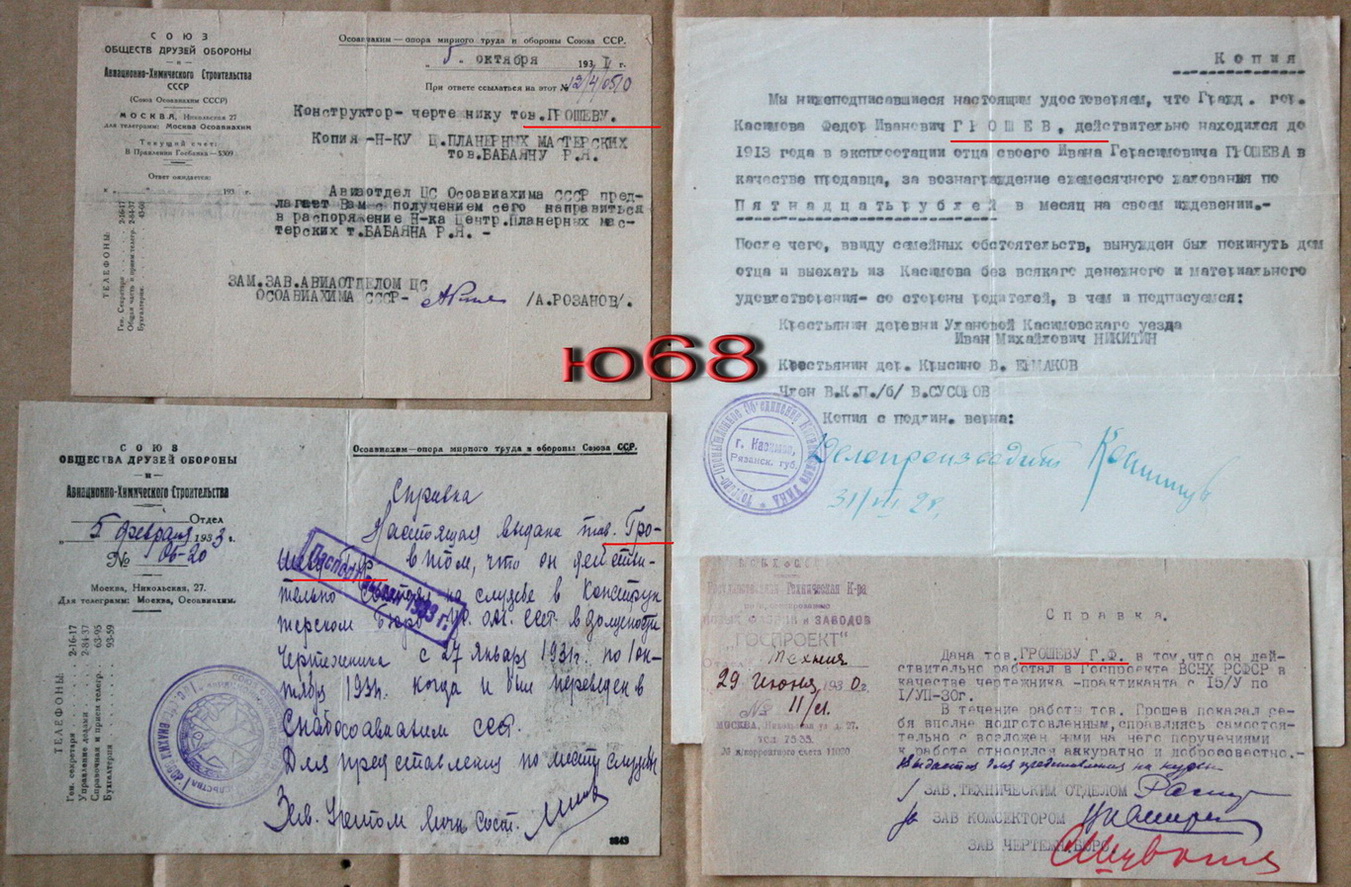 СОЮЗ
ОБЩЕСТВ ДРУЗЕЙ ОБОРОНЫ
и
Авиационно-Химического Строительства
СССР
(Союз Осоавиахим СССР)
МОСКВА, Никольская 27
для телеграмм: Москва Осоавиахим
Текущий счет:
В Правлении Госбанка—5309
Ответ ожидается:
к 193 г.
ТЕЛЕФОНЫ:
Ген. Секретаря 2-16-17
Общая часть и прием телегр. 2-84-37
Бухгалтерия 43-60
Осоавиахим—опора мирного труда и обороны Союза ССР.
„5„ октября 193 г.
При ответе ссылаться на этот № 12/4/05/0
Конструктор- черте нику тов.ГРОШЕВУ.
Копия -Н-КУ Ц.ПЛАНЕРНЫХ МАСТЕРСКИХ
тов.БАБАЯНУ Р.Я.
Авиотдел ЦС Осоавиахима СССР пред-
лагает Вам с получением сего направиться
в распоряжение Н-ка Центр.Планерных мас-
терских т.БАБАЯНА Р.Я. -
ЗАМ.ЗАВ.АВИАОТДЕЛОМ ЦС
ОСОАВИАХИМА СССР- /А.РОЗАНОВ/.
Копия
Мы нижеподписавшиеся настоящим удостоверяем, что Гражд. гор.
Касимова Федор Иванович ГРОШЕВ, действительно находился до
1913 года в эксплоетации отца своего Ивана Герасимовича ГРОШЕВА в
качестве продавца, за вознаграждение ежемесячного жалования по
Пятнадцатьрублей в месяц на своем иждевении.-
После чего, ввиду семейных обстоятельств, вынужден был покинуть дом
отца и выехать из Касимова без всякаго денежного и материального
удовлетворения- со стороны родителей, в чем и подписуемся:
Крестьянин деревни Улановой Касимовскаго уезда
Иван Михайлович НИКИТИН
Крестьянин дер. Крысино В. ЕРМАКОВ
Член В.К.П./б/ В.СУСОРОВ
Копия с подлин. верна:
г. Касимов,
Рязанск. губ.
Делопроизводит
31/VIII 29.
ю68
СОЮЗ
ОБЩЕСТВА ДРУЗЕЙ ОБОРОНЫ
и
Авиационно-Химического Строительства
Отдел
„5 февраля 1933 г.
№ 106-20
Москва, Никольская, 27.
Для телеграмм: Москва, Осоавиахим.
ТЕЛЕФОНЫ:
Ген. секретаря 2-16-17
Управление делами 2-84-37
Справочная и прием телегр. 63-95
Бухгалтерия 93-59
Осоавиахим—опора мирного труда и обороны Союза ССР.
Справка
Настоящая выдана тов. Гро-
шеву Г.Ф. в том, что он действи-
тельно состоял на службе в Конструк
торском бюро в должности
Чертежника с 27 января 1931г. по 1 ок-
тября 1931г. когда и был переведен в
Снабосоавиахим СССР.
Для представления по месту службы
Зав. Учетом личн сост.
Паспорт выдан 1933 г.
1843
В.С.Н.Х. Р.С.Ф.С.Р.
Техническая К-ра
НОВЫХ ФАБРИК И ЗАВОДОВ
„ГОСПРОЕКТ“
Техния
29 Июня 1930 г.
№ 11/с1.
МОСКВА, Никольская ул д. 27.
Справка.
Дана тов.ГРОШЕВУ Г.Ф. в том,что он дей-
ствительно работал в Госпроекте ВСНХ РСФСР в
качестве чертежника -практиканта с 15/У по
I/УП-30г.
В течение работы тов. Грошев показал се-
бя вполне подготовленным,справляясь самостоя-
тельно с возложен ными на него поручениями
к работе относился аккуратно и добросовестно.-
Выдается для представления на
ЗАВ.ТЕХНИЧЕСКИМ ОТДЕЛОМ
ЗАВ КОМСЕКТОРОМ
ЗАВ ЧЕРТЕЖН.БЮРО